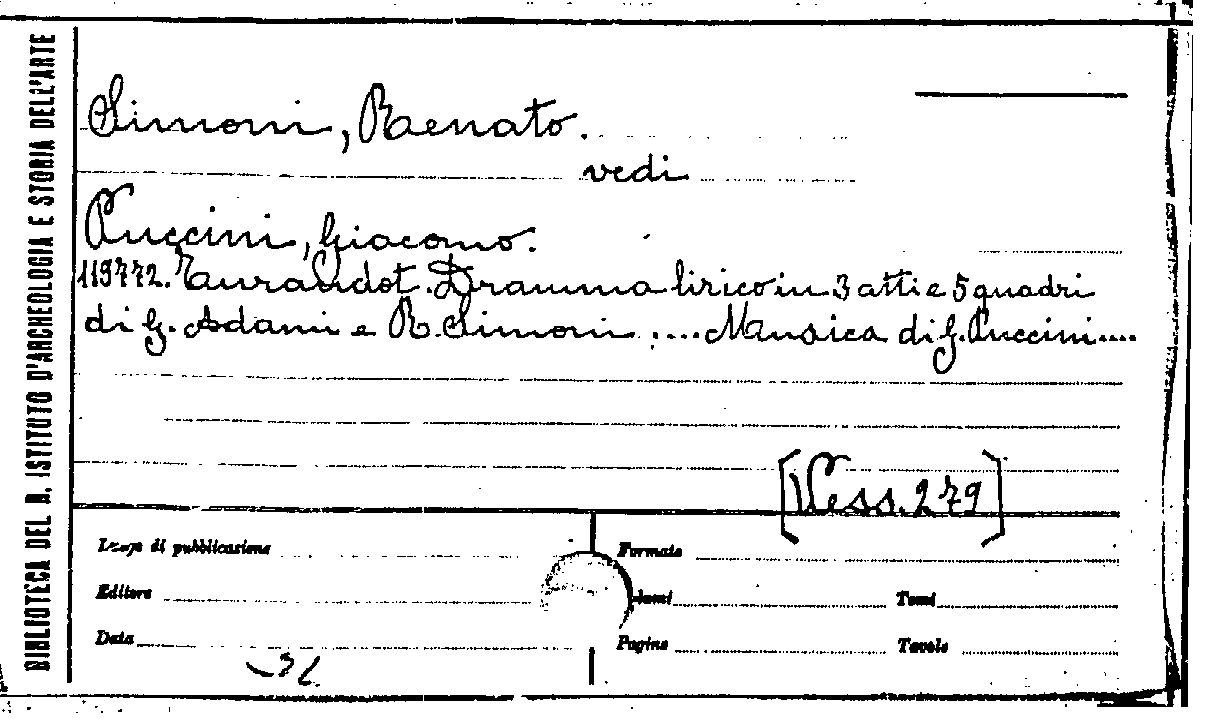 BIBLIOTECA DEL R. ISTITUTO D'ARCHEOLOGIA E STORIA DELL'ARTE
Simoni, Renato.
vedi
Puccini, Giacomo.
119772. Turandot. Dramma lirico in 3 atti e 5 quadri
di G. Adami e R. Simoni .... Musica di G. Puccini ....
[Vess. 279]
Luogo di pubblicazione
Formato
Editore
Tomi
Data
Pagine
Tavole